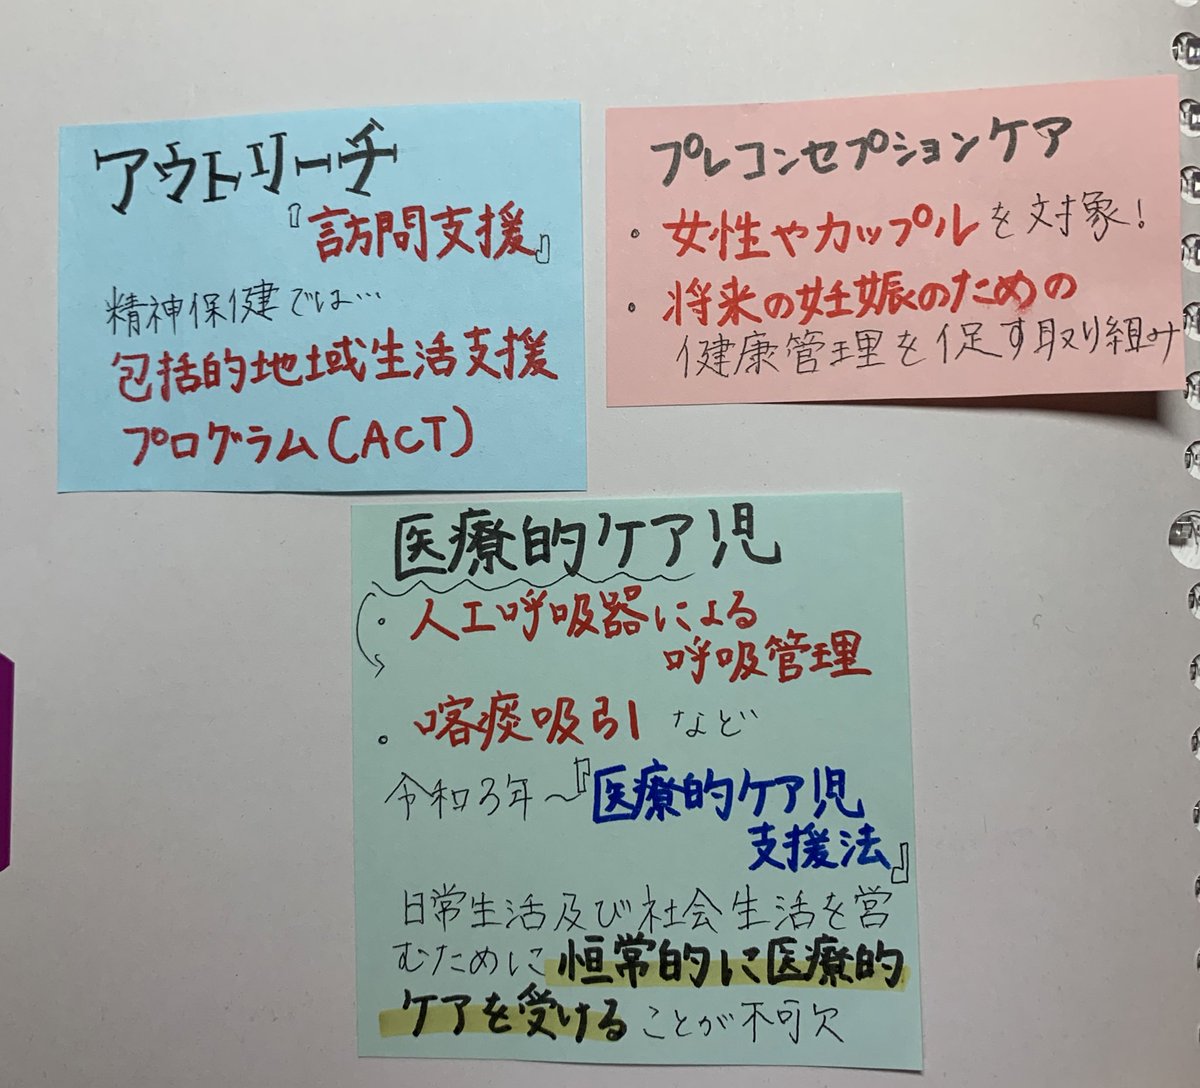 アウトリーチ
『訪問支援』
精神保健では…
包括的地域生活支援
プログラム(ACT)
プレコンセプションケア
・女性やカップルを対象!
・将来の妊娠のための
健康管理を促す取り組み
医療的ケア児
・人工呼吸器による
呼吸管理
・喀痰吸引 など
令和3年～『医療的ケア児
支援法』
日常生活及び社会生活を営
むために恒常的に医療的
ケアを受けることが不可欠